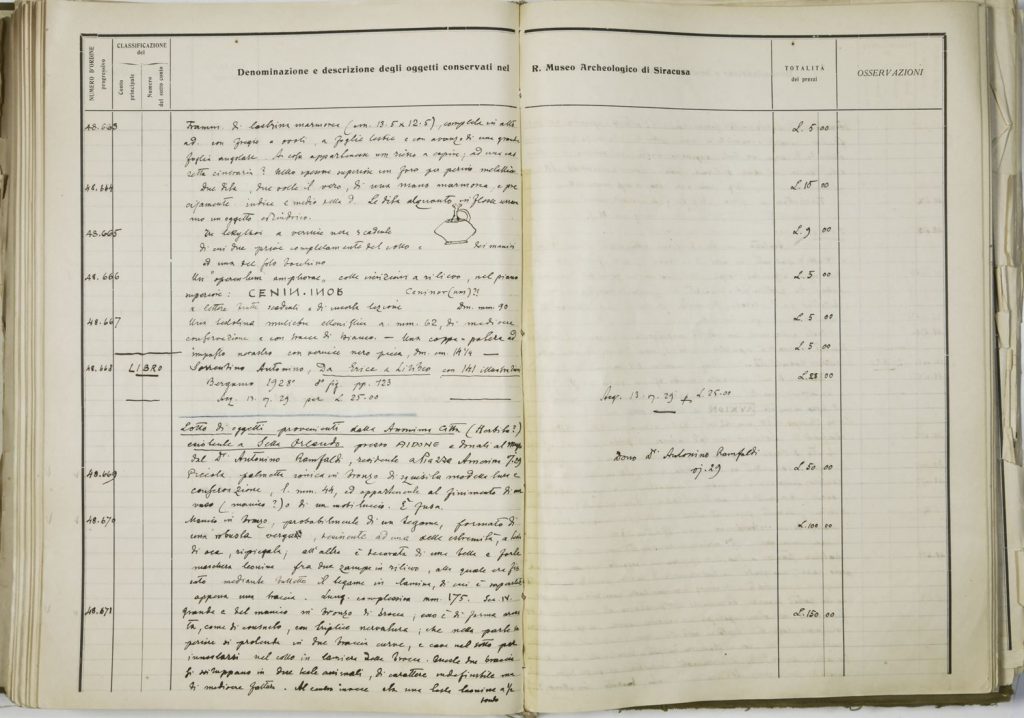 NUMERO D'ORDINE progressivo
CLASSIFICAZIONE del
Conto principale
Numero del sotto conto
Denominazione e descrizione degli oggetti conservati nel R. Museo Archeologico di Siracusa
TOTALITÀ dei prezzi
OSSERVAZIONI
48.663 Framm. di lastrina marmorea (cm. 13.5 x 12.5), completa in alto L. 5 00
ad. con fregio a ovoli, a foglie e con avanzo di una grande
foglia angolare. A cosa appartenesse non riesco a capire; ad una cas
setta cineraria? Nello spessore superiore un foro per pernio metallico
48.664 Due dita, due volte il vero, di una mano marmorea, e pre L. 15 00
cisamente indice e medio della d. Le dita alquanto in flesse
mo un oggetto cilindrico.
48.665 Tre lekythoi a vernice nera scadente L. 9 00
di cui due prive completamente del collo e dei manici
ed una del solo bocchino
48.666 Un "operculum amphorae" colle iscrizioni a rilievo, nel piano L. 5 00
superiore: CENIN.INOB Ceninor(um)?!
a lettere scadenti e di incerta lezione Dm. mm. 90
48.667 Una testolina muliebre a. mm. 62, di mediocre L. 5 00
conservazione e con tracce di bianco. — Una coppa-patera ad L. 5 00
impasto nerastro con vernice nera dm. cm 14¼ —
48.668 LIBRO Sorrentino Antonino, Da Erice a Lilibeo con 141 illustrazioni L. 25 00
Bergamo 1928 8° fig. pp. 123
Acq. 13. VI. 29 per L. 25.00 Acq. 13. VI. 29 L. 25.00
Lotto di oggetti provenienti dalla Anonima Città (Herbita?)
esistente a Sella Orlando presso AIDONE e donati al Museo
del Dr. Antonino Ramfaldi, residente a Piazza Armerina Dono Dr. Antonino Ramfaldi
VI.29
48.669 Piccola palmetta ionica in bronzo di squisita modellatura e L. 50 00
conservazione, l. mm. 44, ed appartenente al finimento di un
vaso (manico?) o di un mobiluccio. È fusa.
48.670 Manico in bronzo, probabilmente di un tegame, formato di L. 100 00
una robusta verga, desinente ad una delle estremità, a testa
di oca, ripiegata; all'altro è decorata di una bella e forte
maschera leonina fra due zampe in rilievo, alla quale era fis
sato mediante il tegame in lamina, di cui è
appena una traccia. Lung. complessiva mm. 175.
48.671 grande e bel manico in bronzo di brocca; esso è di forma arcua L. 150 00
ta, come di consueto, con triplice nervatura; che nella parte su
periore si protende in due braccia curve, e cave nel sotto per
innestarsi nel collo in lamiera della brocca. Queste due braccia
si sviluppano in due teste animali, di carattere indefinibile ma
di mediocre fattura. Al centro invece sta una testa leonina a
tondo